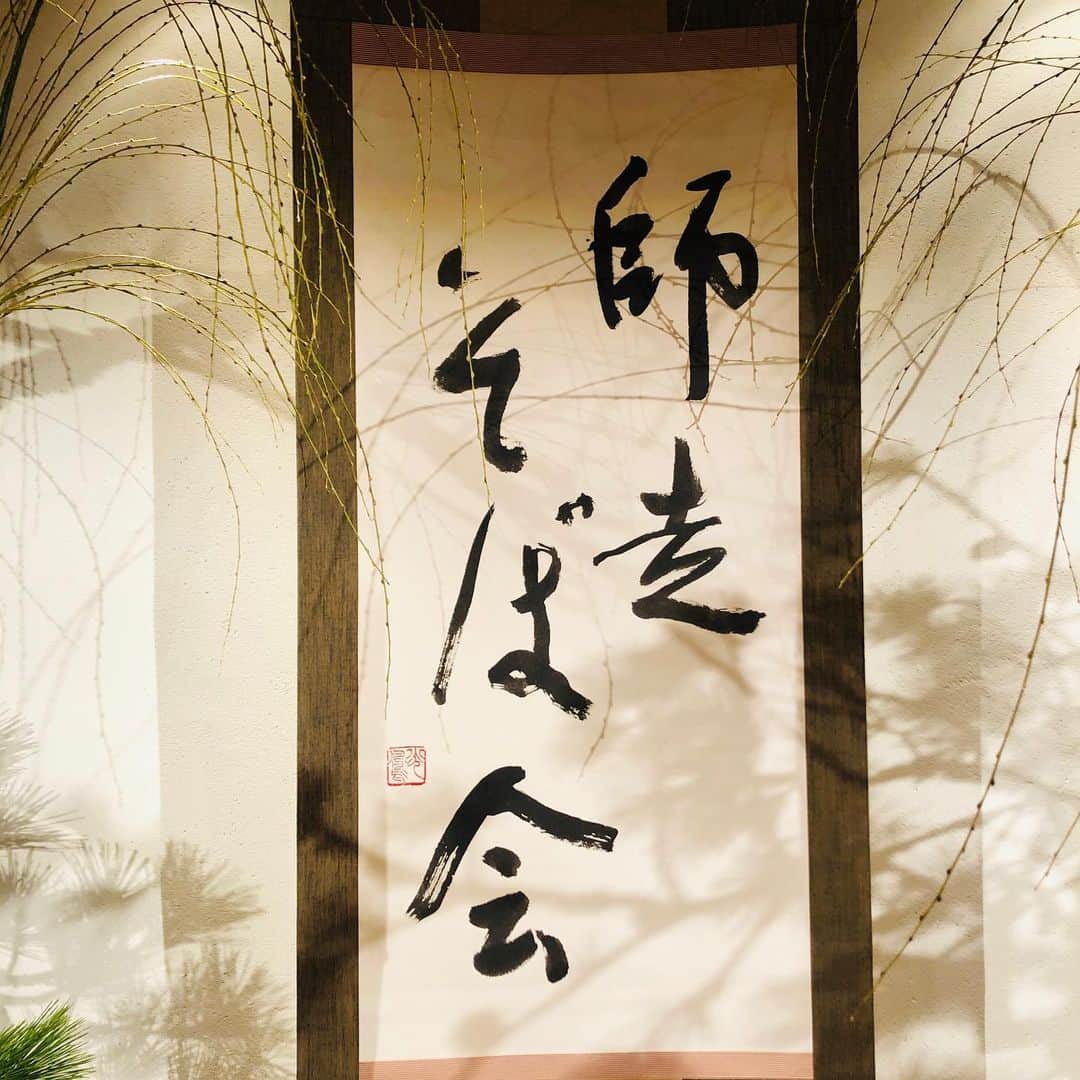 師走
そば会